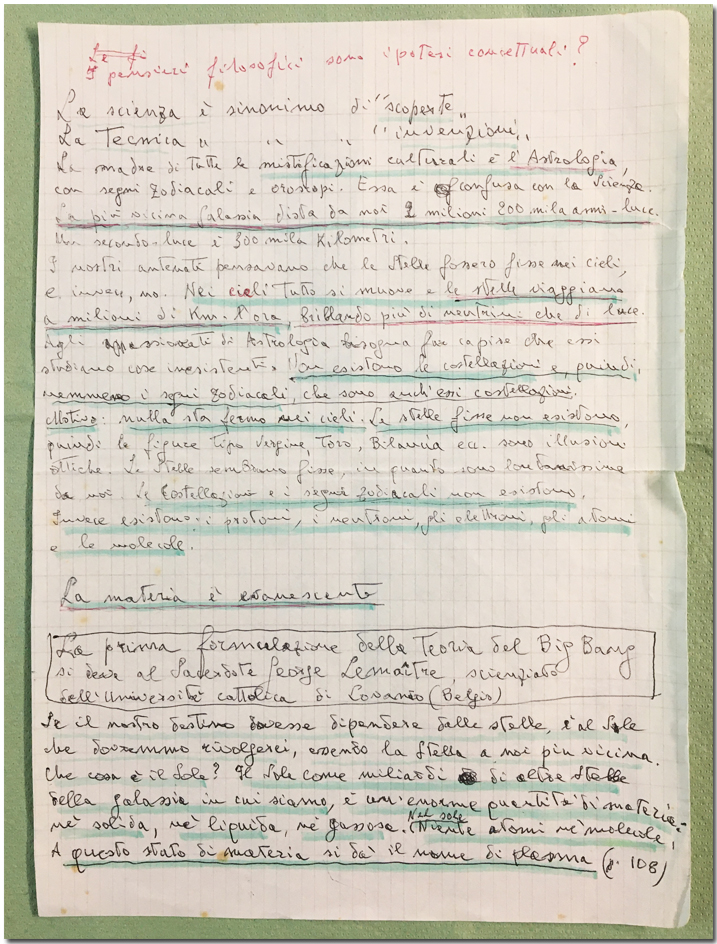 I pensieri filosofici sono ipotesi concettuali?
La scienza è sinonimo di "scoperte„
La Tecnica „ „ „ "invenzioni„.
La madre di tutte le mistificazioni culturali è l'Astrologia,
con segni zodiacali e oroscopi. Essa è confusa con la Scienza.
La più vicina Galassia dista da noi 2 milioni 200 mila anni-luce.
Un secondo-luce è 300 mila Kilometri.
I nostri antenati pensavano che le stelle fossero fisse nei cieli,
e invece, no. Nei cieli tutto si muove e le stelle viaggiano
a milioni di Km. l'ora, brillando più di neutrini che di luce.
Agli appassionati di Astrologia bisogna far capire che essi
studiano cose inesistenti. Non esistono le costellazioni e, quindi,
nemmeno i segni zodiacali, che sono anch'essi costellazioni.
Motivo: nulla sta fermo nei cieli. Le stelle fisse non esistono,
quindi le figure tipo Vergine, Toro, Bilancia ecc. sono illusioni
ottiche. Le stelle sembrano fisse, in quanto sono lontanissime
da noi. Le Costellazioni e i segni zodiacali non esistono.
Invece esistono: i protoni, i neutroni, gli elettroni, gli atomi
e le molecole.
La materia è evanescente
La prima formulazione della Teoria del Big Bang
si deve al Sacerdote George Lemaître, scienziato
dell'Università cattolica di Lovanio (Belgio)
Se il nostro destino dovesse dipendere dalle stelle, è al Sole
che dovremmo rivolgerci, essendo la Stella a noi più vicina.
Che cosa è il Sole? Il Sole come miliardi di altre stelle
della galassia in cui siamo, è un'enorme quantità di materia:
né solida, né liquida, né gassosa. Nel sole Niente atomi né molecole,
A questo stato di materia si dà il nome di plasma (p. 108)